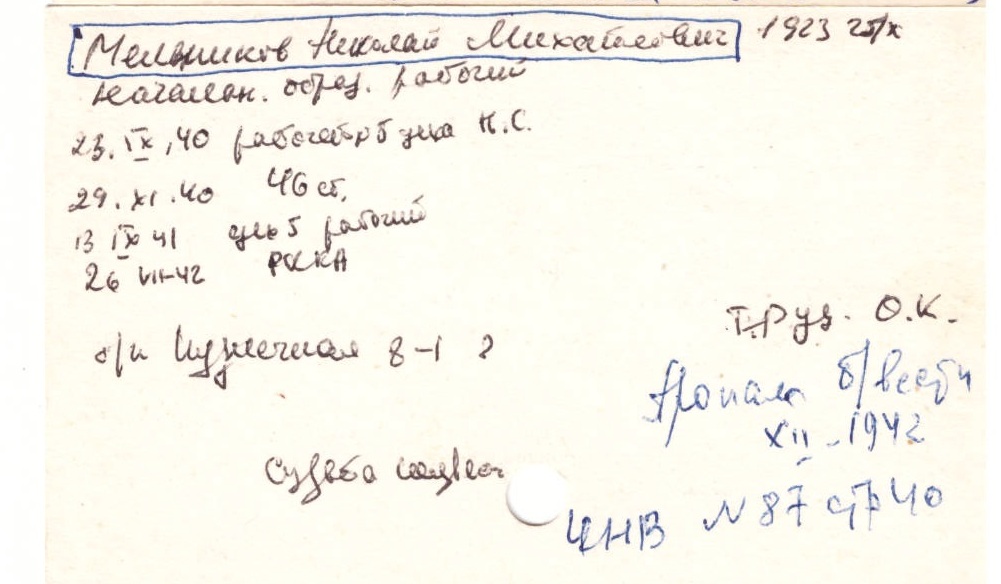 Мельников Николай Михайлович 1923 г б/х
началн. образ. рабочий
23.IX.40 рабочий цеха Н.С.
29.XI.40 46 ст.
13 IX 41 цех 5 рабочий
26 VII-42 РККА
Т.Руд. О.К.
д/и Кузнечная 8-1
Пропал б/вести
XII-1942
Судьба неизвест
ЦНВ N 87 стр 40